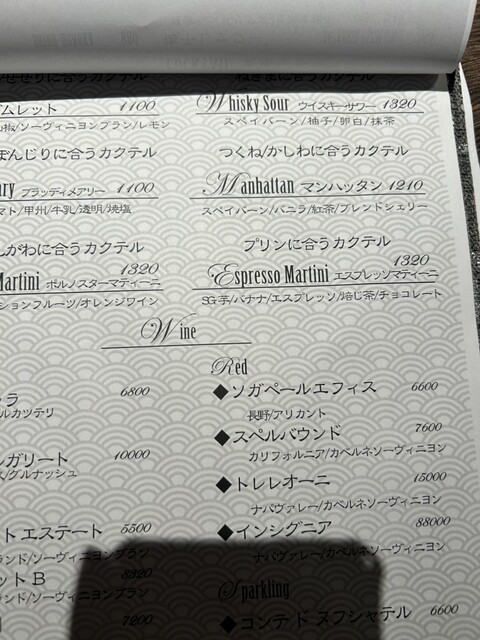 せせりに合うカクテル
ムレット 1100
山椒/ソーヴィニヨンブラン/レモン
ぼんじりに合うカクテル
ary ブラッディメアリー 1100
マト/甲州/牛乳/透明/焼塩
んがわに合うカクテル
1320
Martini ポルノスターマティーニ
ションフルーツ/オレンジワイン
ねぎまに合うカクテル
Whisky Sour ウイスキーサワー 1320
スペイバーン/柚子/卵白/抹茶
つくね/かしわに合うカクテル
Manhattan マンハッタン 1210
スペイバーン/バニラ/紅茶/ブレンドシェリー
プリンに合うカクテル
1320
Espresso Martini エスプレッソマティーニ
SG芋/バナナ/エスプレッソ/焙じ茶/チョコレート
Wine
ラ 6800
ルカツテリ
ガリート 10000
ス/グルナッシュ
ト エステート 5500
ランド/ソーヴィニヨンブラン
ット B 8320
ランド/ソーヴィニヨンブラン
7200
Red
◆ソガペールエフィス 6600
長野/アリカント
◆スペルバウンド 7600
カリフォルニア/カベルネソーヴィニヨン
◆トレレオーニ 15000
ナパヴァレー/カベルネソーヴィニヨン
◆インシグニア 88000
ナパヴァレー/カベルネソーヴィニヨン
Sparkling
◆コンテ ド ヌフシャテル 6600